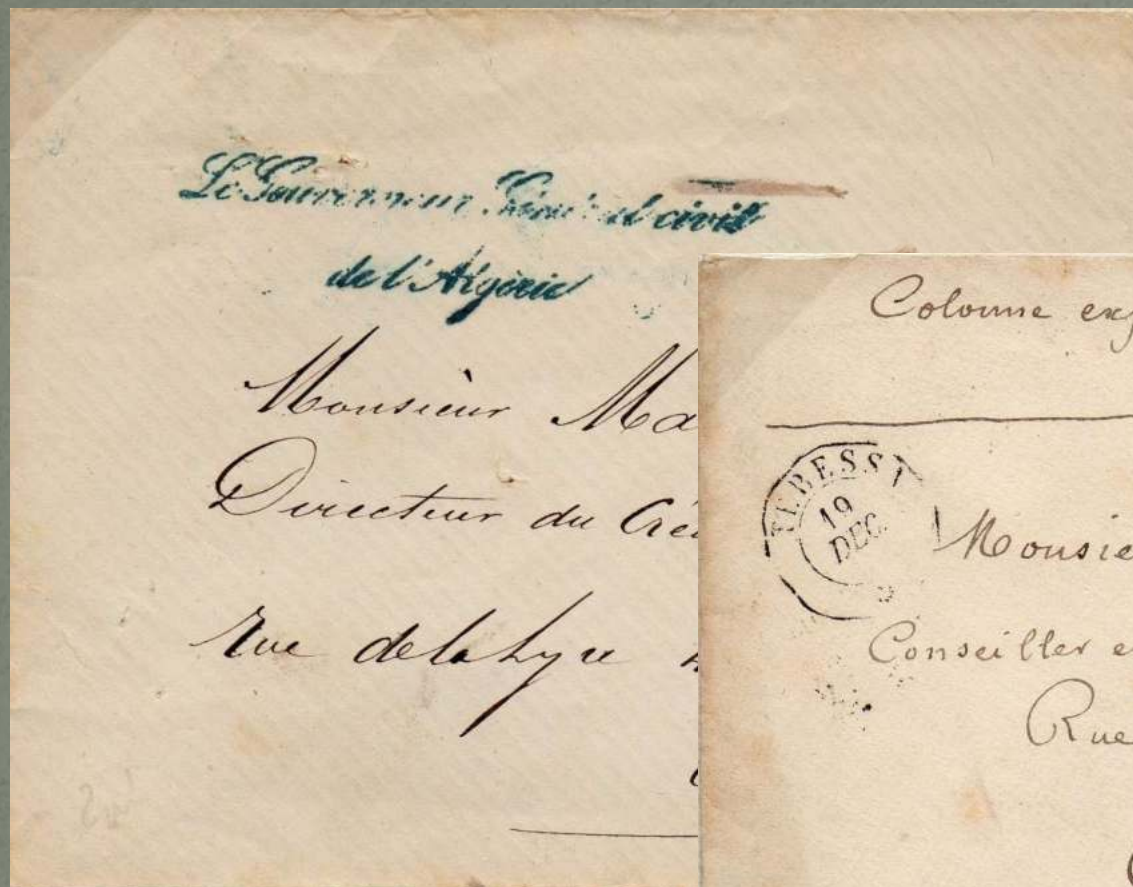 Le Gouverneur Général civil
de l'Algérie
Monsieur Ma
Directeur du Cré
Rue de la Lyre
Colonne exp
TEBESSA
19
DEC.
Monsie
Conseiller e
Rue